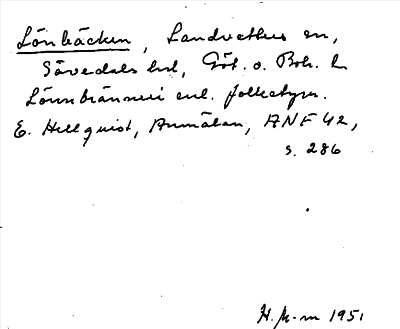 Lönbäcken, Landvetters sn,
Sävedals hd, Göt. o. Boh. l.
Lönnbränneri enl. folketym.
E. Hellquist, Anmälan, ANF 42,
s. 286
H. M-m 1951